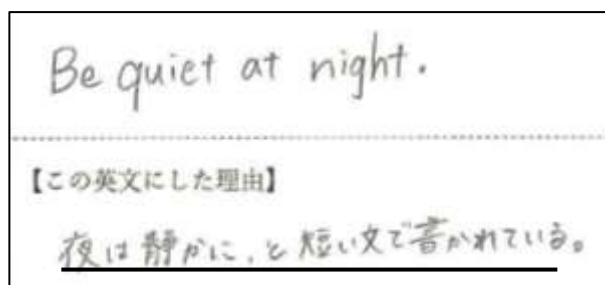 Be quiet at night.
【この英文にした理由】
夜は静かに、と短い文で書かれている。